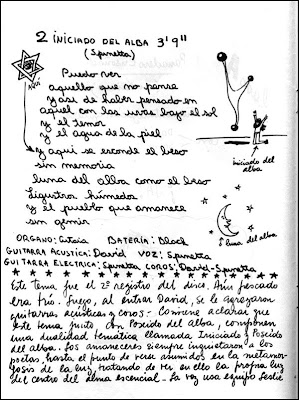 2 INICIADO DEL ALBA 3'9"
(Spinetta)
Puedo ver
aquello que no pensé
y así de haber pensado en
aquel con las uvas bajo el sol
y el temor
y el agua de la piel
y aquí se esconde el beso
sin memoria
luna del alba como el beso
Ligustro húmedo
y el pueblo que amanece
sin gemir
iniciado del
alba
luna del alba
ORGANO: Cutaia BATERÍA: Black
GUITARRA ACUSTICA: David VOZ: Spinetta
GUITARRA ELECTRICA: Spinetta COROS: David-Spinetta
Este tema fue el 2º registro del disco. Aún pescado
era trío. Luego, al entrar David, se le agregaron
guitarras acústicas y coros. Conviene aclarar que
este tema junto con Poseído del alba, componen
una dualidad temática llamada Iniciado y Poseído
del alba. Los amaneceres siempre inquietaron a los
poetas, hasta el punto de verse asumidos en la metamor-
fosis de la luz, tratando de ver en ello la propia luz
del centro del alma esencial. La voz usa equipo Leslie